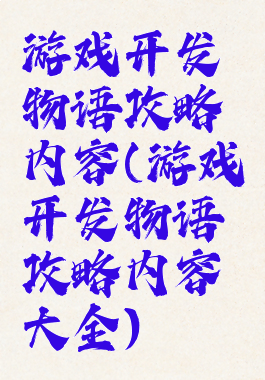 游戏开发
物语攻略
内容(游戏
开发物语
攻略内容
大全)